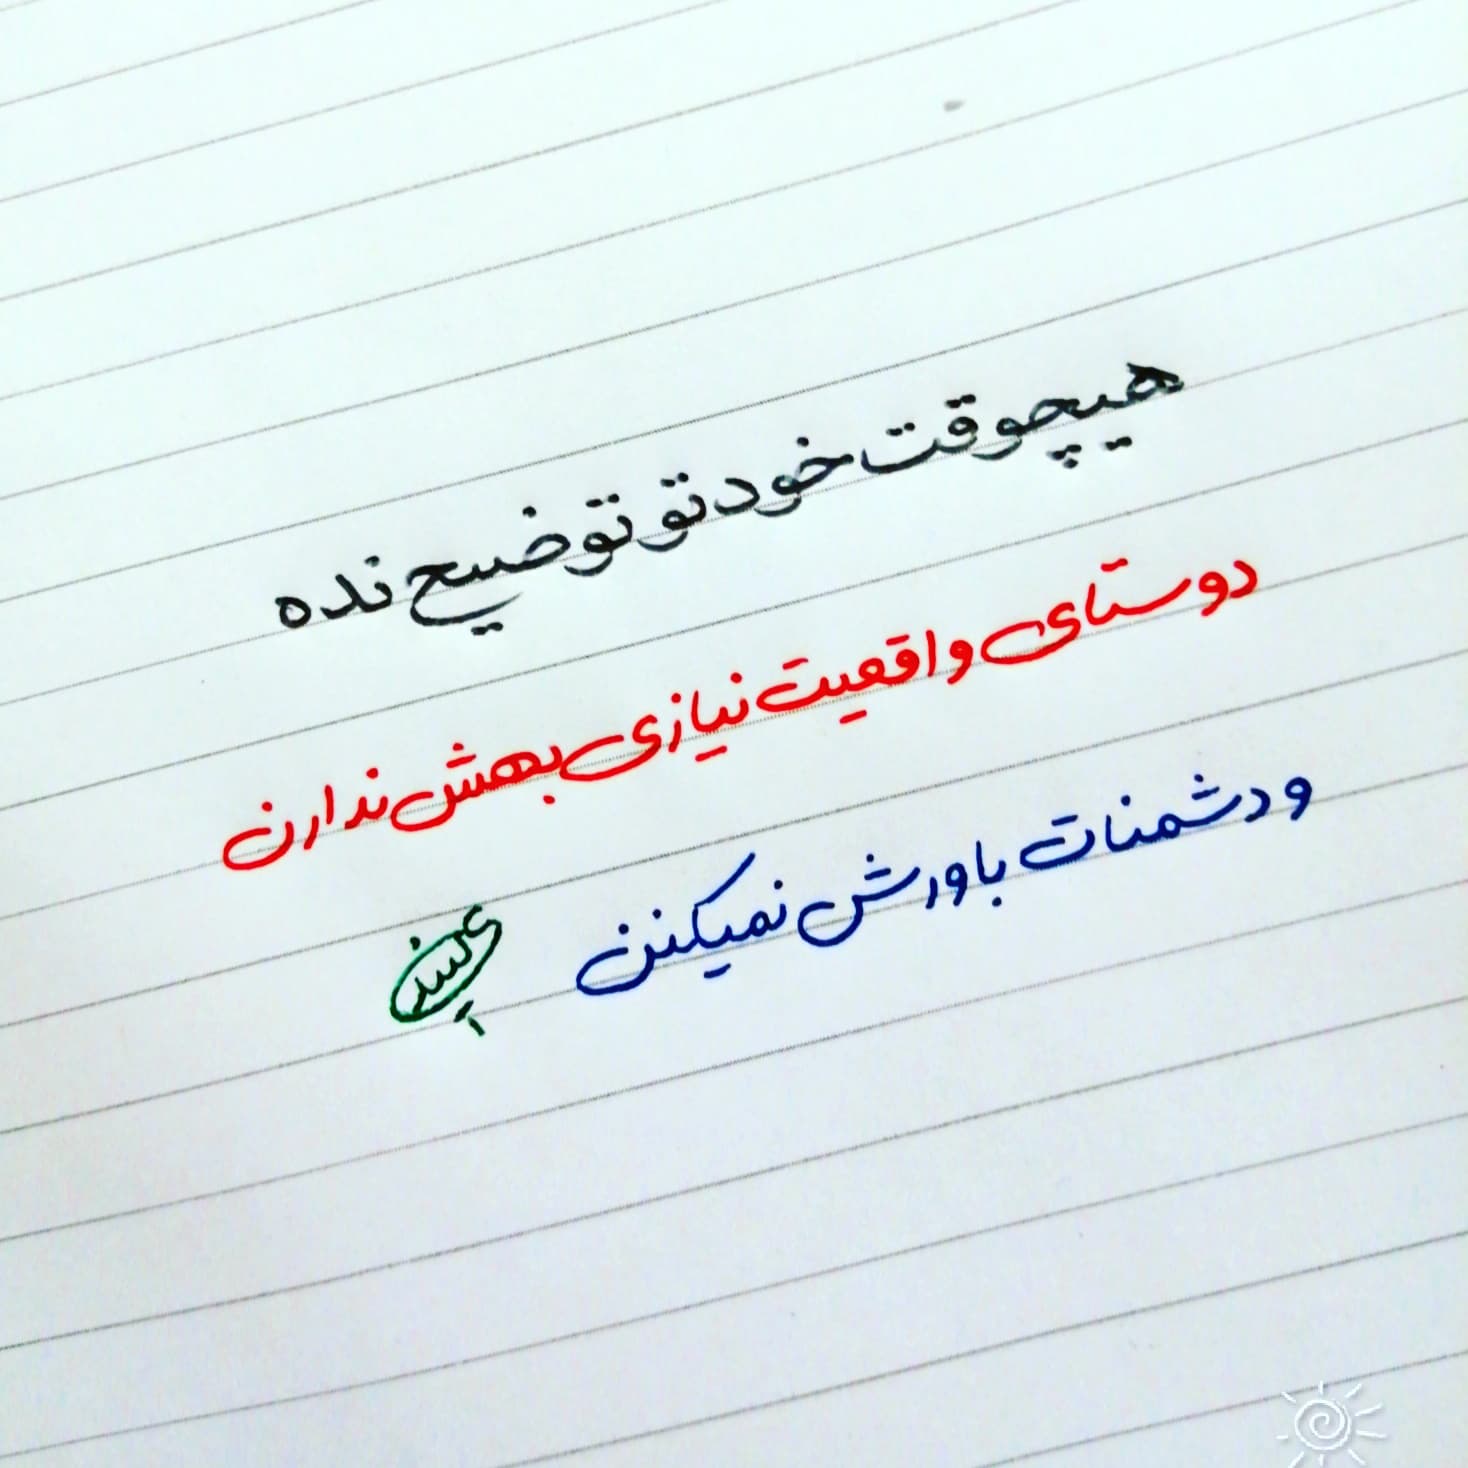 هیچوقت خودتو توضیح نده
دوستای واقعیت نیازی بهش ندارن
و دشمنات باورش نمیکنن